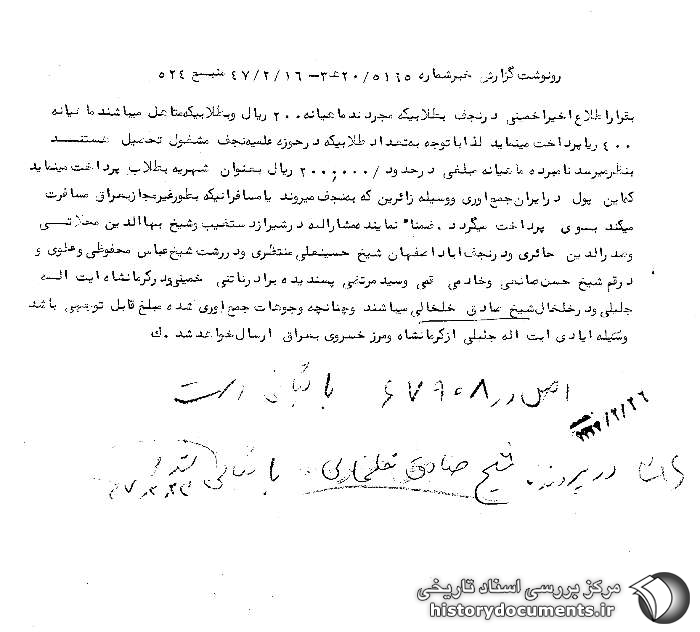 رونوشت گزارش خبر شماره ۵۱۶۵/۲۰ ه‍ ۳ – ۴۷/۲/۱۶ منبع ۵۲۴
بقرار اطلاع اخیرا خمینی در نجف بطلابیکه مجردند ماهیانه ۲۰۰ ریال و بطلابیکه متاهل میباشند ماهیانه
۴۰۰ ریال پرداخت مینماید لذا با توجه به تعداد طلابیکه در حوزه علمیه نجف مشغول تحصیل هستند
بنظر میرسد نامبرده ماهیانه مبلغی در حدود /۲۰۰,۰۰۰ ریال بعنوان شهریه بطلاب پرداخت مینماید
که این پول در ایران جمع اوری و وسیله زائرین که بنجف میروند یا مسافرانیکه بطور غیر مجاز بعراق مسافرت
میکند بسوی پرداخت میگردد . ضمنا نماینده مشارالیه در شیراز دستغیب و شیخ بهاالدین محلاتی
وصدرالدین حائری ودر نجف اباد اصفهان شیخ حسینعلی منتظری ودر رشت شیخ عباس محفوظی وعلوی و
در قم شیخ حسن صانعی وخادمی قمی وسید مرتضی پسندیده برادر ناتنی خمینی ودر کرمانشاه ایت اله
جلیلی ودر خلخال شیخ صادق خلخالی میباشند وچنانچه وجوهات جمع اوری شده مبلغ قابل توجهی باشد
وسیله ایادی ایت اله جلیلی از کرمانشاه ومرز خسروی بعراق ارسال خواهد شد . ک
اصل در ۶۷۹۰۸ بایگانی است
۴۷/۲/۲۶
در پرونده شیخ صادق خلخالی بایگانی شد
۴۷/۲/۲۳
مرکز بررسی اسناد تاریخی
historydocuments.ir